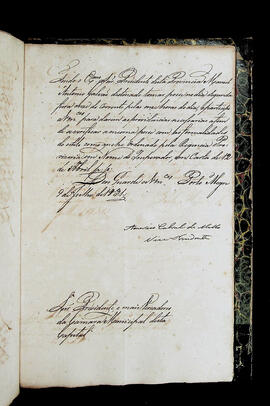 Tendo o Exmo Snr Presidente desta Provincia Manoel
Antonio Galvão destinado tomar posse no dia segunda
feira do corrente pelas horas do dia, participo
a Vmces para darem as providencias necessarias afim
de se verificar a mesma posse com as formalidades
do estilo como me he Ordenado pela Regencia Pro
vizoria em Nome do Imperador, em Carta de 12
de Abril p. p.
Deos Guarde a Vmces Porto Alegre
9 de Julho de 1831
Americo Cabral de Mello
Vice Presidente
Snrs Presidente e mais Vereadores
da Camara Municipal desta
Capital